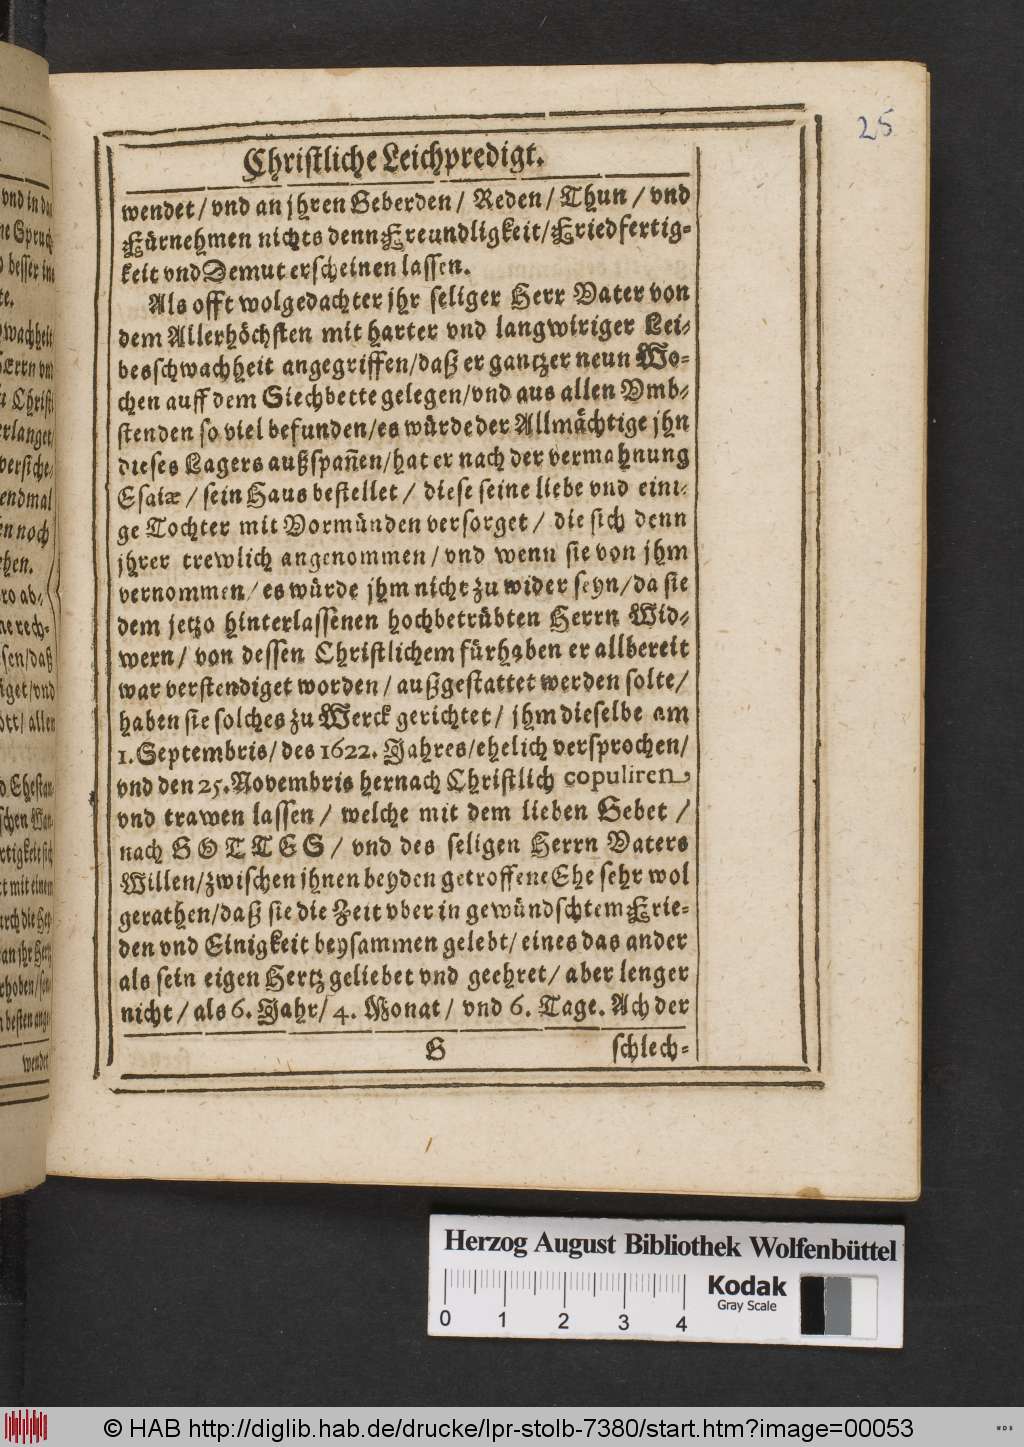 25
Christliche Leichpredigt.
wendet / vnd an jhren Geberden / Reden / Thun / vnd
Fürnehmen nichts denn Freundligkeit / Friedfertig-
keit vnd Demut erscheinen lassen.
Als offt wolgedachter jhr seliger Herr Vater von
dem Allerhöchsten mit harter vnd langwiriger Lei-
besschwachheit angegriffen / daß er gantzer neun Wo-
chen auff dem Siechbette gelegen / vnd aus allen Vmb-
stenden so viel befunden / es würde der Allmächtige jhn
dieses Lagers außspañen / hat er nach der vermahnung
Esaiæ / sein Haus bestellet / diese seine liebe vnd eini-
ge Tochter mit Vormünden versorget / die sich denn
jhrer trewlich angenommen / vnd wenn sie von jhm
vernommen / es würde jhm nicht zu wider seyn / da sie
dem jetzo hinterlassenen hochbetrübten Herrn Wid-
wern / von dessen Christlichem fürhaben er allbereit
war verstendiget worden / außgestattet werden solte /
haben sie solches zu Werck gerichtet / jhm dieselbe am
1. Septembris / des 1622. Jahres / ehelich versprochen /
vnd den 25. Novembris hernach Christlich copuliren
vnd trawen lassen / welche mit dem lieben Gebet /
nach GOTTES / vnd des seligen Herrn Vaters
Willen / zwischen jhnen beyden getroffene Ehe sehr wol
gerathen / daß sie die Zeit vber in gewündschtem Frie-
den vnd Einigkeit beysammen gelebt / eines das ander
als sein eigen Hertz geliebet vnd geehret / aber lenger
nicht / als 6. Jahr / 4. Monat / vnd 6. Tage. Ach der
G schlech-
wendet
Herzog August Bibliothek Wolfenbüttel
Kodak
Gray Scale
0 1 2 3 4
© HAB http://diglib.hab.de/drucke/lpr-stolb-7380/start.htm?image=00053